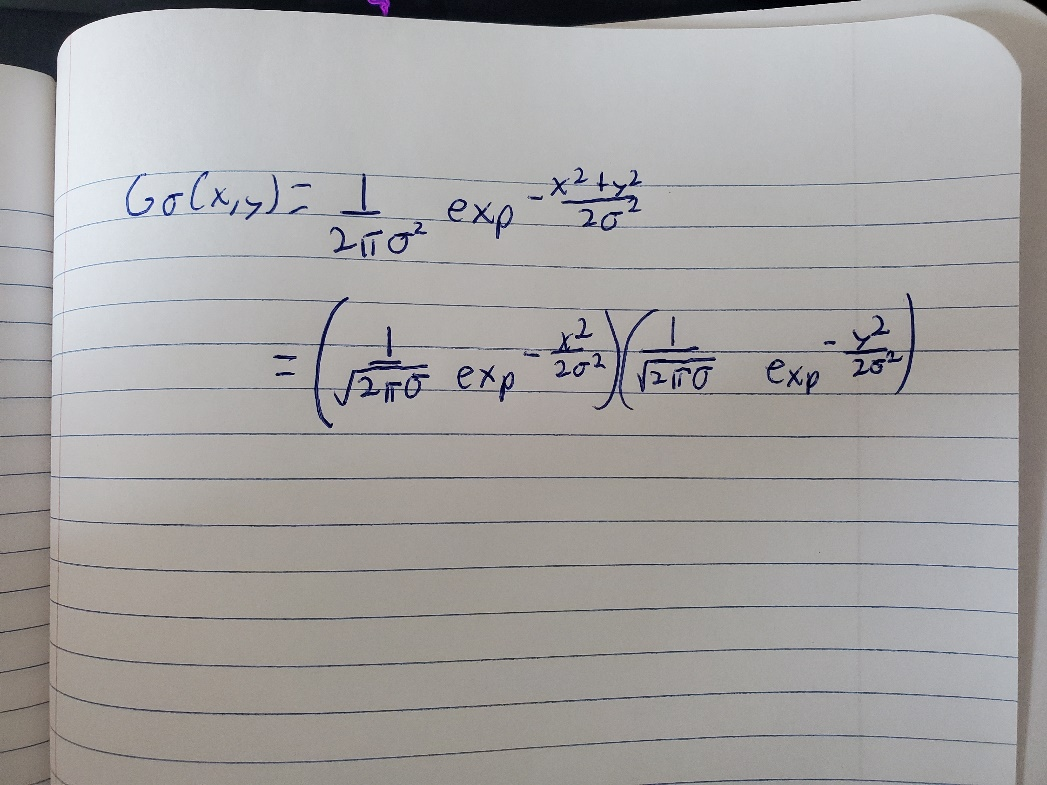 Gσ(x,y) = \frac{1}{2πσ^2} exp^{-\frac{x^2+y^2}{2σ^2}}
= \left(\frac{1}{\sqrt{2πσ}} exp^{-\frac{x^2}{2σ^2}}\right)\left(\frac{1}{\sqrt{2πσ}} exp^{-\frac{y^2}{2σ^2}}\right)